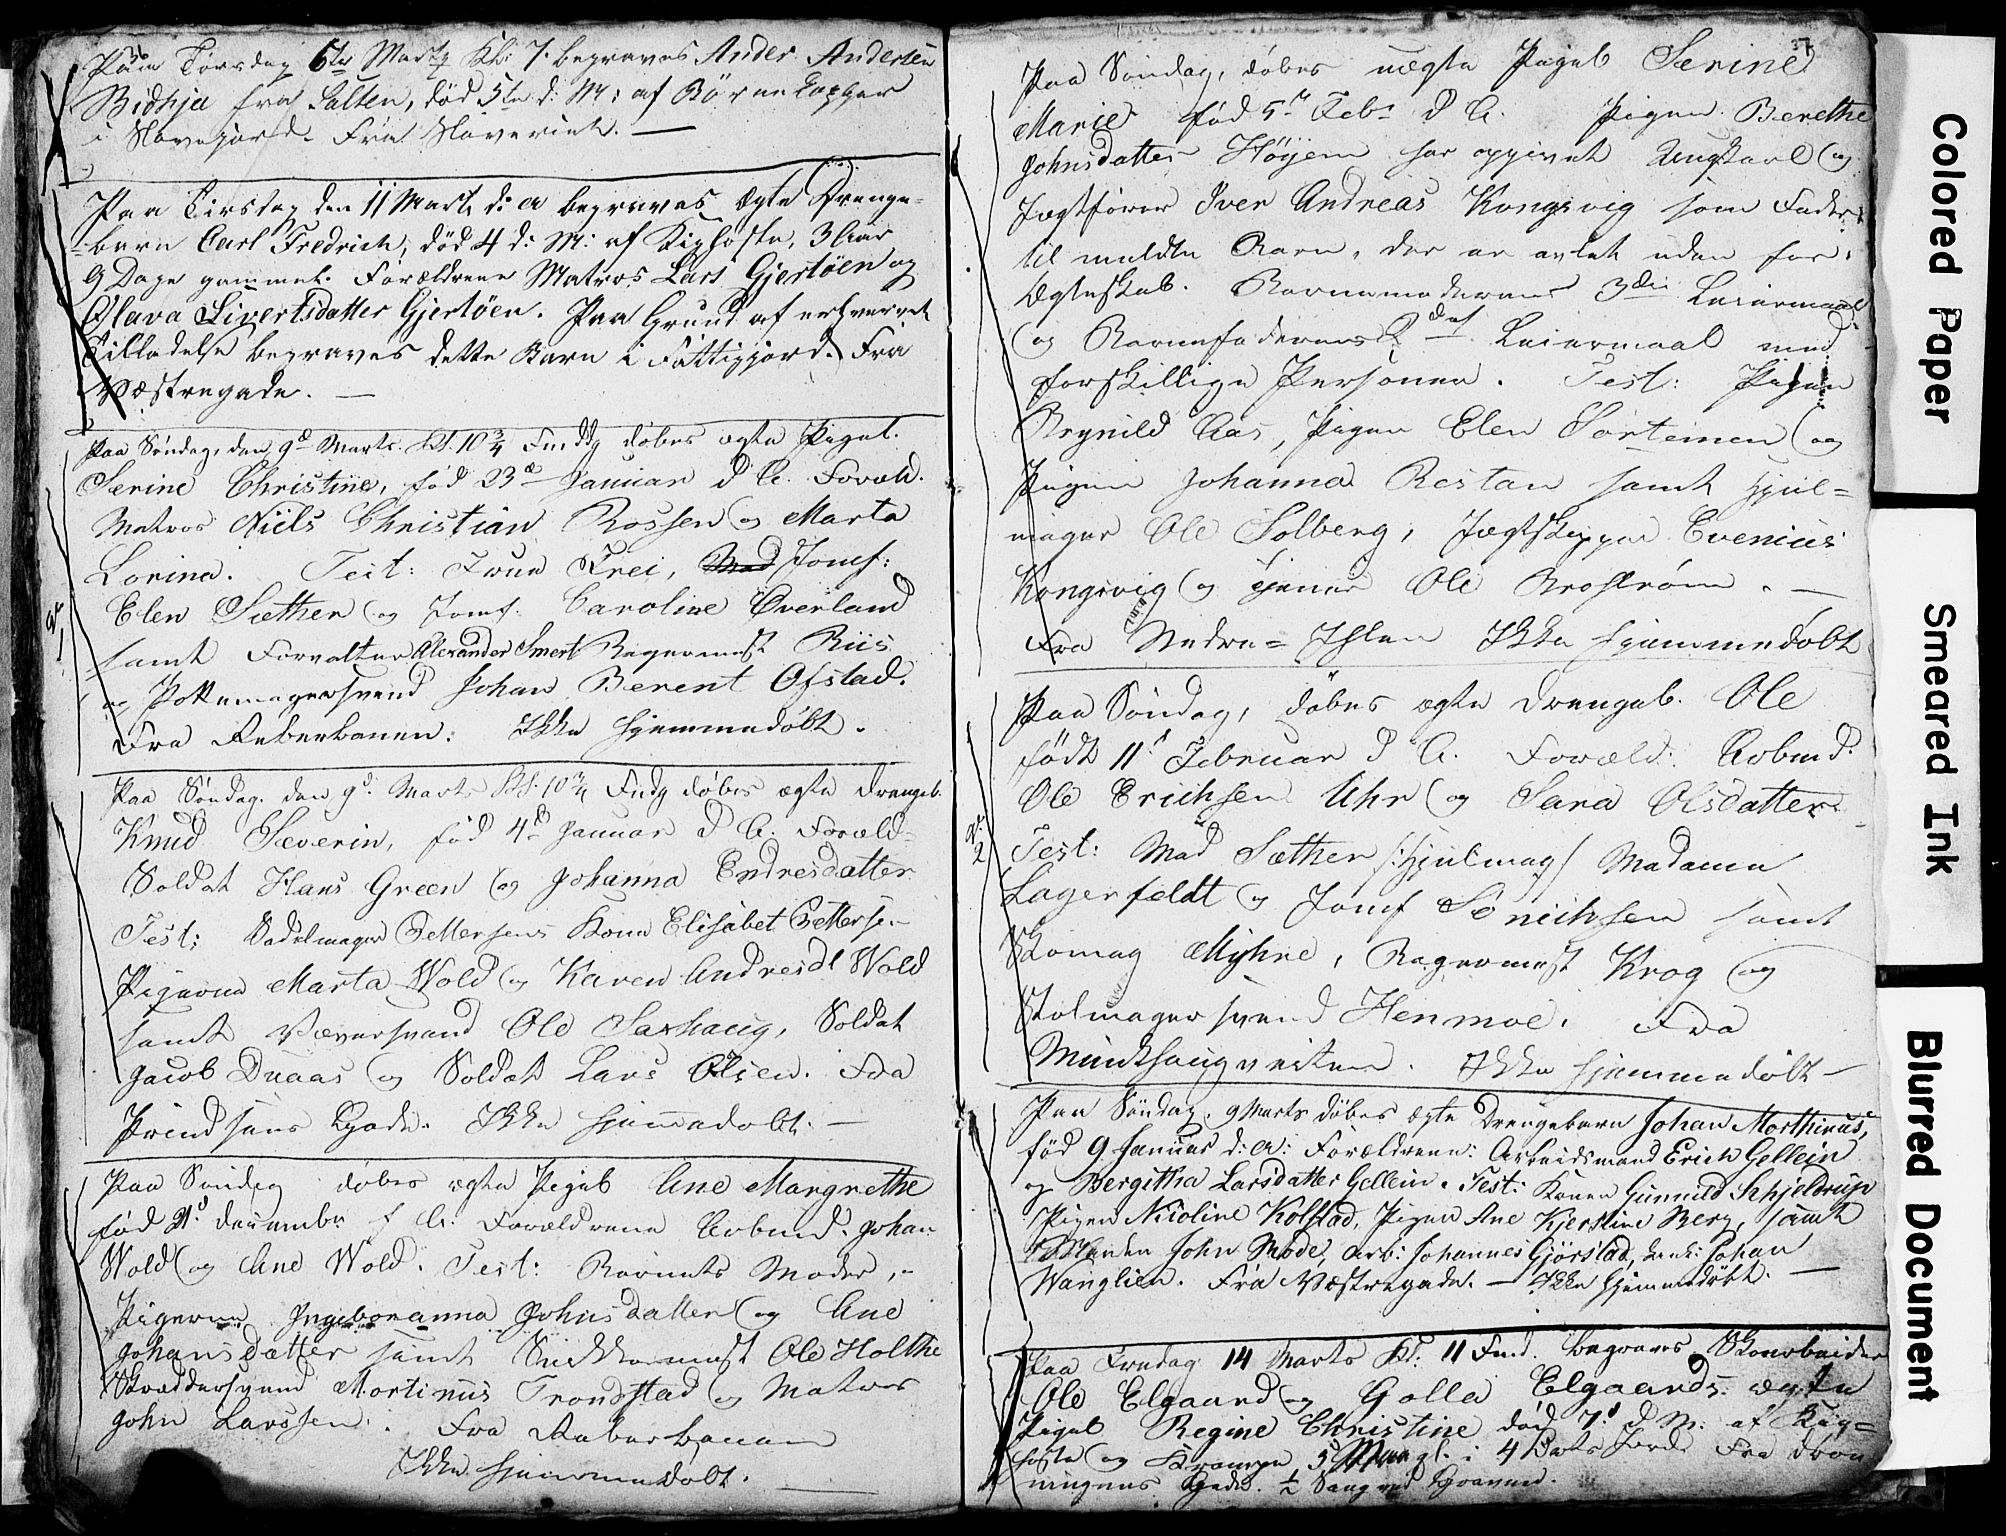 36
Paa Torsdag 6te Marts Kl: 7. begraves Ander Andersen
Bidhja fra Salten, død 5te d: M: af Børnekopper
i Slavejord. Fra Slaveriet. —
Paa Tirsdag den 11 Marts d: A begraves ægte Drenge-
-barn Carl Fredrich, død 4 d: M: af Kighoste, 3 Aar
9 Dage gammel. Forældrene Matros Lars Gjertöen og
Olava Sivertsdatter Gjertöen. Paa Grund af erhvervet
Tilladelse begraves dette Barn i Fattigjord. Fra
Væstregade. —
Paa Søndag, den 9d Marts. Kl. 10 3/4 Fmddg døbes ægte Pigeb.
Serine Christine, fød 23d Januar d A. Foræld.
Matros Niils Christian Rossen og Marta
Lorina. Test: Frue Frei, Mad Jomf:
Elen Sæther og Jomf. Caroline Overland
samt Forvalter Alexander Smert Bagermest Riis
og Pottemagersvend Johan Berent Ofstad.
Fra Reberbanen. Ikke hjemmedøbt.
N 1
Paa Søndag. den 9d. Marts Kl. 10 3/4 Fmdg døbes ægte Drengeb.
Knud Severin, fød 4d Januar d A. Foræld-
Soldat Hans Green og Johanna Endresdatter
Test: Sadelmager Pettersens Kone Elisabet Petterse-
Pigerne Marta Wold og Karen Andresdt Wold
samt Væversvend Ole Saxhaug, Soldat
Jacob Duaas og Soldat Lars Olsen. Fra
Prindsens Gade. Ikke hjemmedøbt. —
Paa Søndag døbes ægte Pigeb Ane Margrethe
fød 21d. December f A. Forældrene Arbmd. Johan
Wold og Ane Wold. Test: Barnets Moder,
Pigerne Ingeboranna Johnsdatter og Ane
Johansdatter samt Snekkermest Ole Holthe
Skræddersvend Mortinus Trondstad og Matros
John Larssen. Fra Reberbanen
Ikke hjemmedøbt. —
37
Paa Søndag, døbes uægte Pigeb Serine
Marie fød 5te Feb. d A. Pigen Berethe
Johnsdatter Höyem har opgivet Ungkarl og
Jægtfører Iver Andreas Kongsvig som Fader
til meldte Barn, der er avlet uden for
Ægteskab. Barnemoderens 3die Leiermaal
og Barnefaderens 2det Leiermaal med
forskillige Personer. Test: Pigen
Brynild Aas, Pigen Elen Sortemen og
Pigen Johanna Restan samt Hjul-
mager Ole Solberg, Jægtskipper Evenius
Kongsvig og Tjener Ole Broström. —
Fra Nedre-Ihlen Ikke hjemmedøbt
Paa Søndag, døbes ægte Drengeb. Ole
født 11d Februar d A. Foræld: Arbmd.
Ole Erichsen Uhr og Sara Olsdatter.
Test: Mad Sæther /:Hjulmag/ Madame
Lagerfeldt og Jomf Sönichsen samt
Skomag Myhre, Bagermest Krog og
Stolmagersvend Henmoe. Fra
Munkhaugveiten. Ikke hjemmedøbt —
N: 2
Paa Söndag, 9 Marts döbes ægte Drengebarn Johan Morthinus,
född 9 Januar d: A: Forældrene: Arbeidsmand Erich Gellein
og Bergitha Larsdatter Gellein. Test: Konen Gunnild Schjeldrup
Pigen Nicoline Kolstad, Pigen Ane Kjerstine Berg, samt
John Mode, Arb: Johannes Gjörstad, Johan
Wanglien. Fra Væstregade. — Ikke hjemmedøbt. —
Paa Fredag 14 Marts Kl: 11 Fmd. begraves Skoarbeider
Ole Elgaard og Golla Elgaards ægte
Pigeb Regine Christine død 7d d M. af Kig-
hoste og Krampe 5 Maan gl. i 4 Marks Jord Fra Dron
ningens Gade. 1/2 Sang ved Graven.
Colored Paper
Smeared Ink
Blurred Document